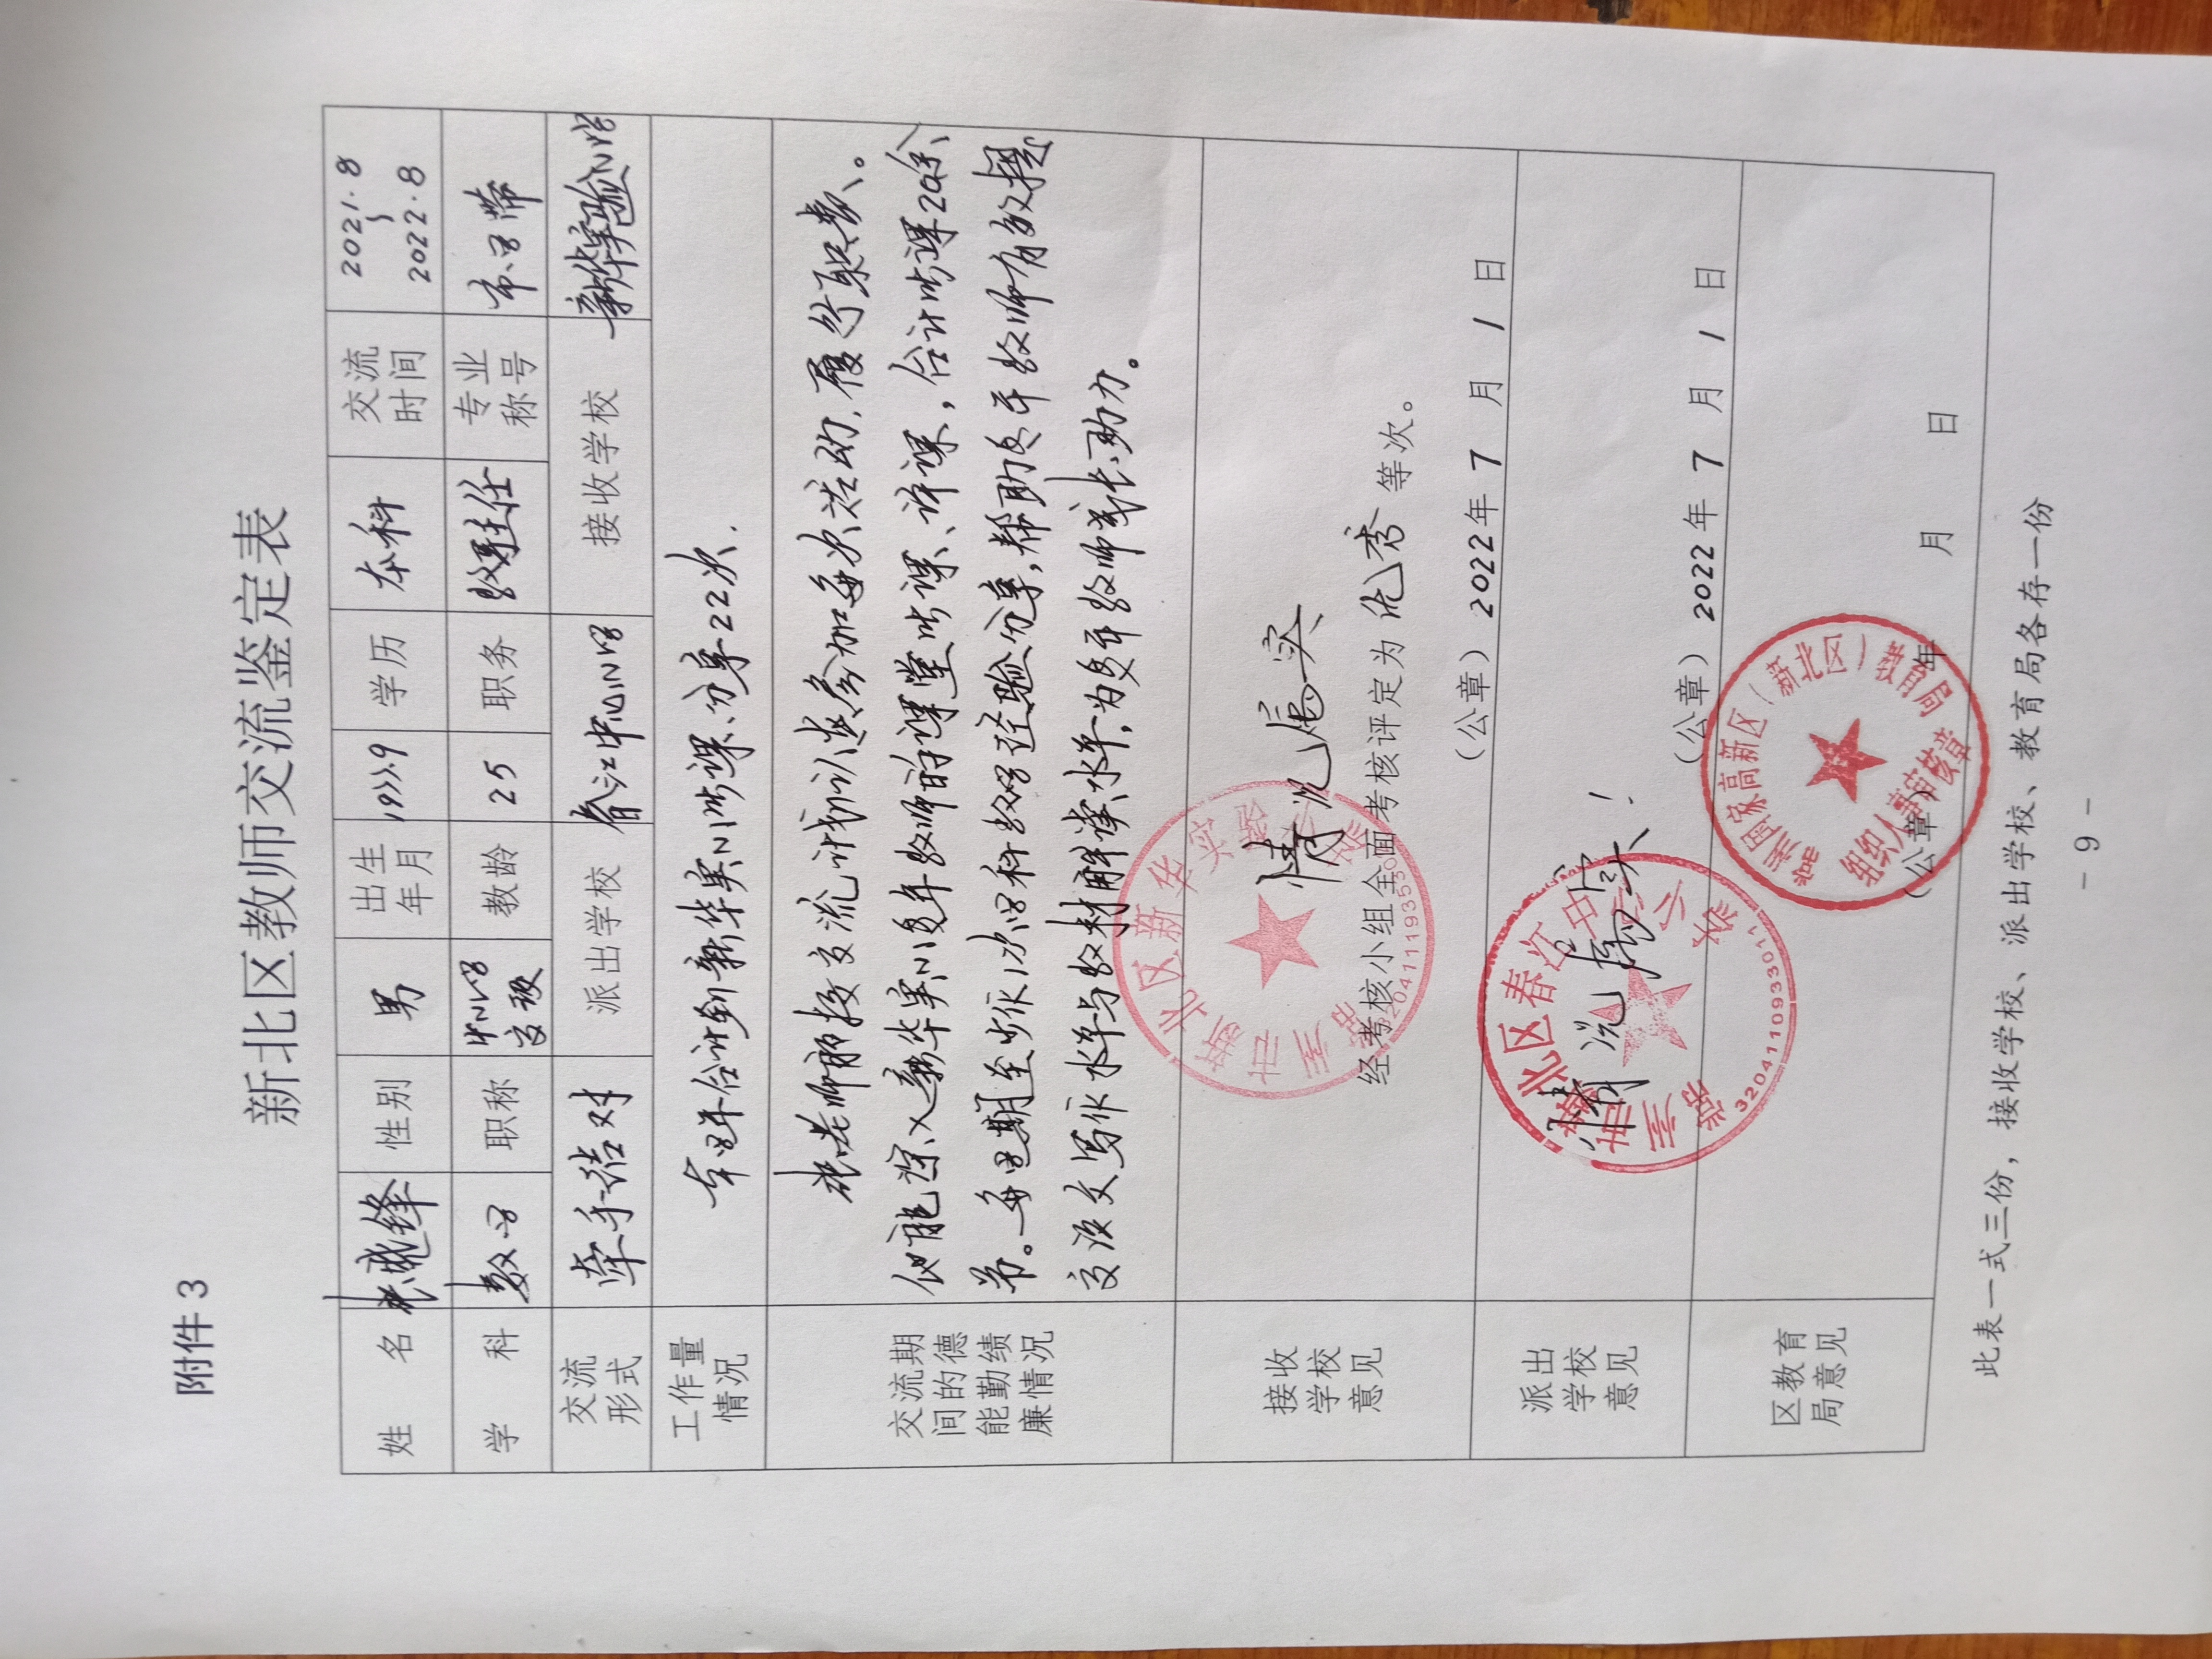 附件 3
新北区教师交流鉴定表
姓 名 性别 男 出生年月 1977.9 学历 本科 交流时间 2021.8 ~ 2022.8
学 科 数学 职称 中小学高级 教龄 25 职务 教科主任 专业称号 市学带
交流形式 牵手结对 派出学校 春江中心小学 接收学校 新华实验小学
工作量情况 本学年合计到新华实小听课、分享22次.
交流期间的德能勤绩廉情况
张老师能按交流计划认真参加每次活动,履行职责、。
他能深入新华实小青年教师的课堂听课、评课,合计听课20余
节。每学期至少作1次学科教学经验分享,帮助青年教师有效提
高论文写作水平与教材解读水平,为青年教师成长助力。
接收学校意见
情况属实
经考核小组全面考核评定为 优秀 等次。
(公章) 2022年 7 月 1 日
常州市新北区新华实验小学
派出学校意见
情况属实!
(公章) 2022年 7 月 1 日
常州市新北区春江中心小学
3204110933011
区教育局意见
常州国家高新区(新北区)教育局
组织人事审核章
(公章) 年 月 日
此表一式三份,接收学校、派出学校、教育局各存一份
- 9 -